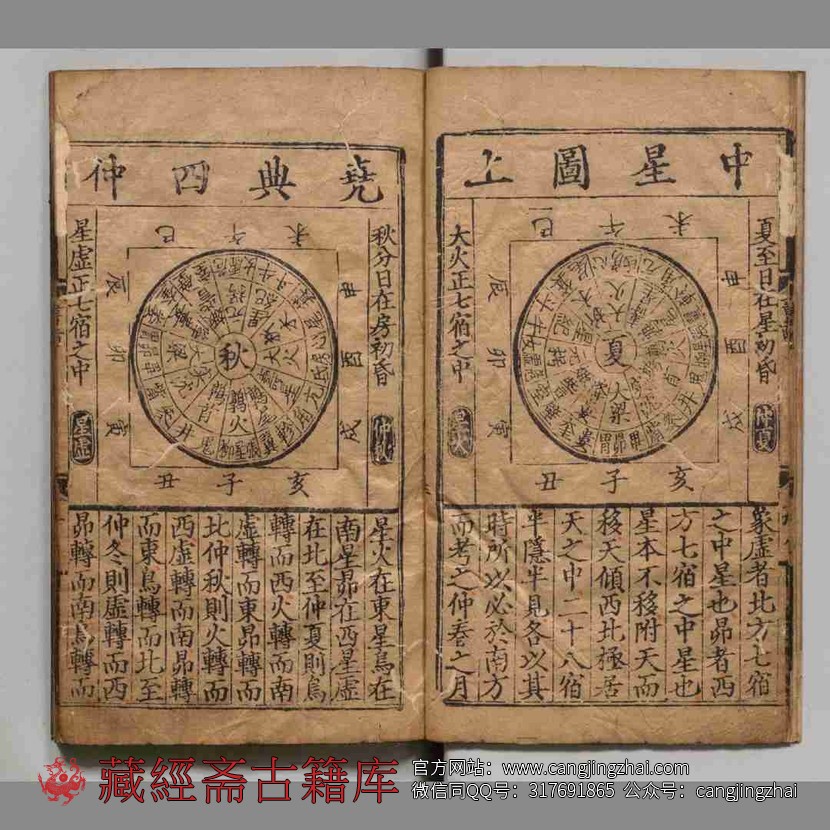 中星圖上
夏至日在星初昏
仲夏
大火正七宿之中
星火
申
酉
戌
未
午
巳
辰
卯
寅
亥
子
丑
夏
大梁
象虛者北方七宿
之中星也昴者西
方七宿之中星也
星本不移附天而
移天傾西北極居
天之中二十八宿
半隱半見各以其
時所以必於南方
而考之仲春之月
堯典四仲
秋分日在房初昏
仲秋
星虛正七宿之中
星虛
申
酉
戌
未
午
巳
辰
卯
寅
亥
子
丑
秋
鶉火
星火在東星鳥在
南星昴在西星虛
在北至仲夏則鳥
轉而西火轉而南
虛轉而東昴轉而
北仲秋則火轉而
西虛轉而南昴轉
而東鳥轉而北至
仲冬則虛轉而西
昴轉而南鳥轉而
藏經斋古籍库
官方网站：www.cangjingzhai.com
微信同QQ号：317691865 公众号：cangjingzhai